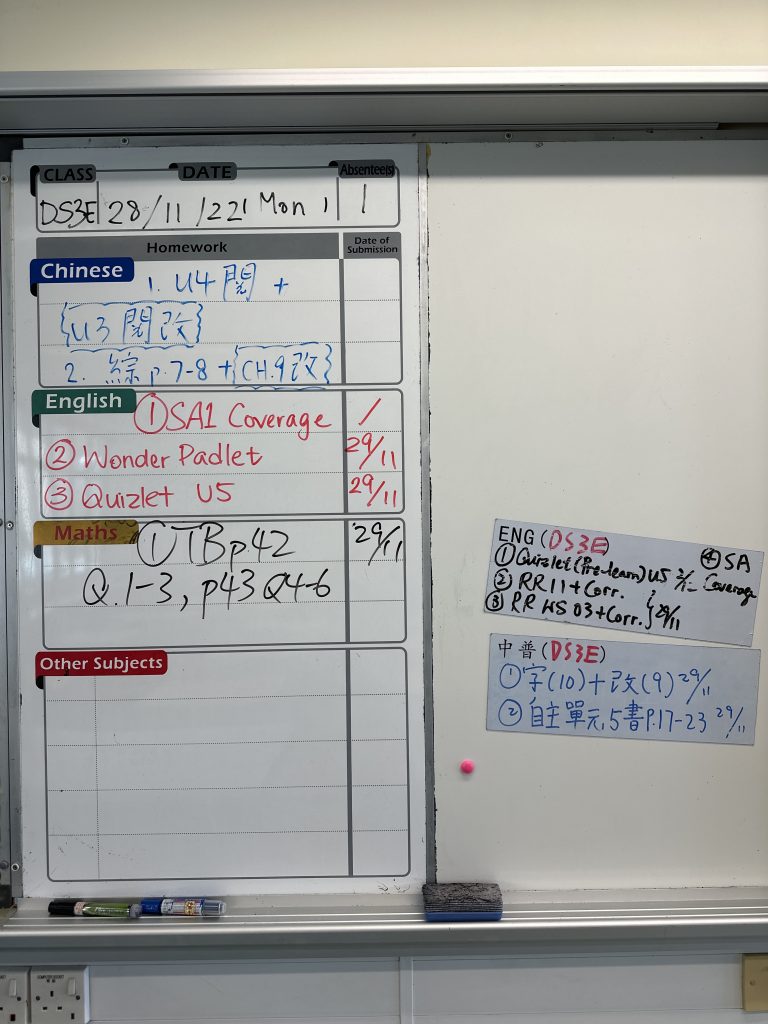 CLASS DATE Absentee(s)
DS3E 28/11/22 Mon 1
Homework Date of Submission
Chinese 1. U4 閱 +
{U3 閱改}
2. 綜 p.7-8 + {CH.9改}
English ① SA1 Coverage /
② Wonder Padlet 29/11
③ Quizlet U5 29/11
Maths ① TB p42 29/11
Q.1-3, p43 Q4-6
Other Subjects
ENG (DS3E) ④ SA
① Quizlet (Pre-learn) U5 Coverage
② RR 11 + Corr.
③ RR WS 03 + Corr. } 29/11
中普 (DS3E)
① 字(10) + 改(9) 29/11
② 自主單元5書P.17-23 29/11